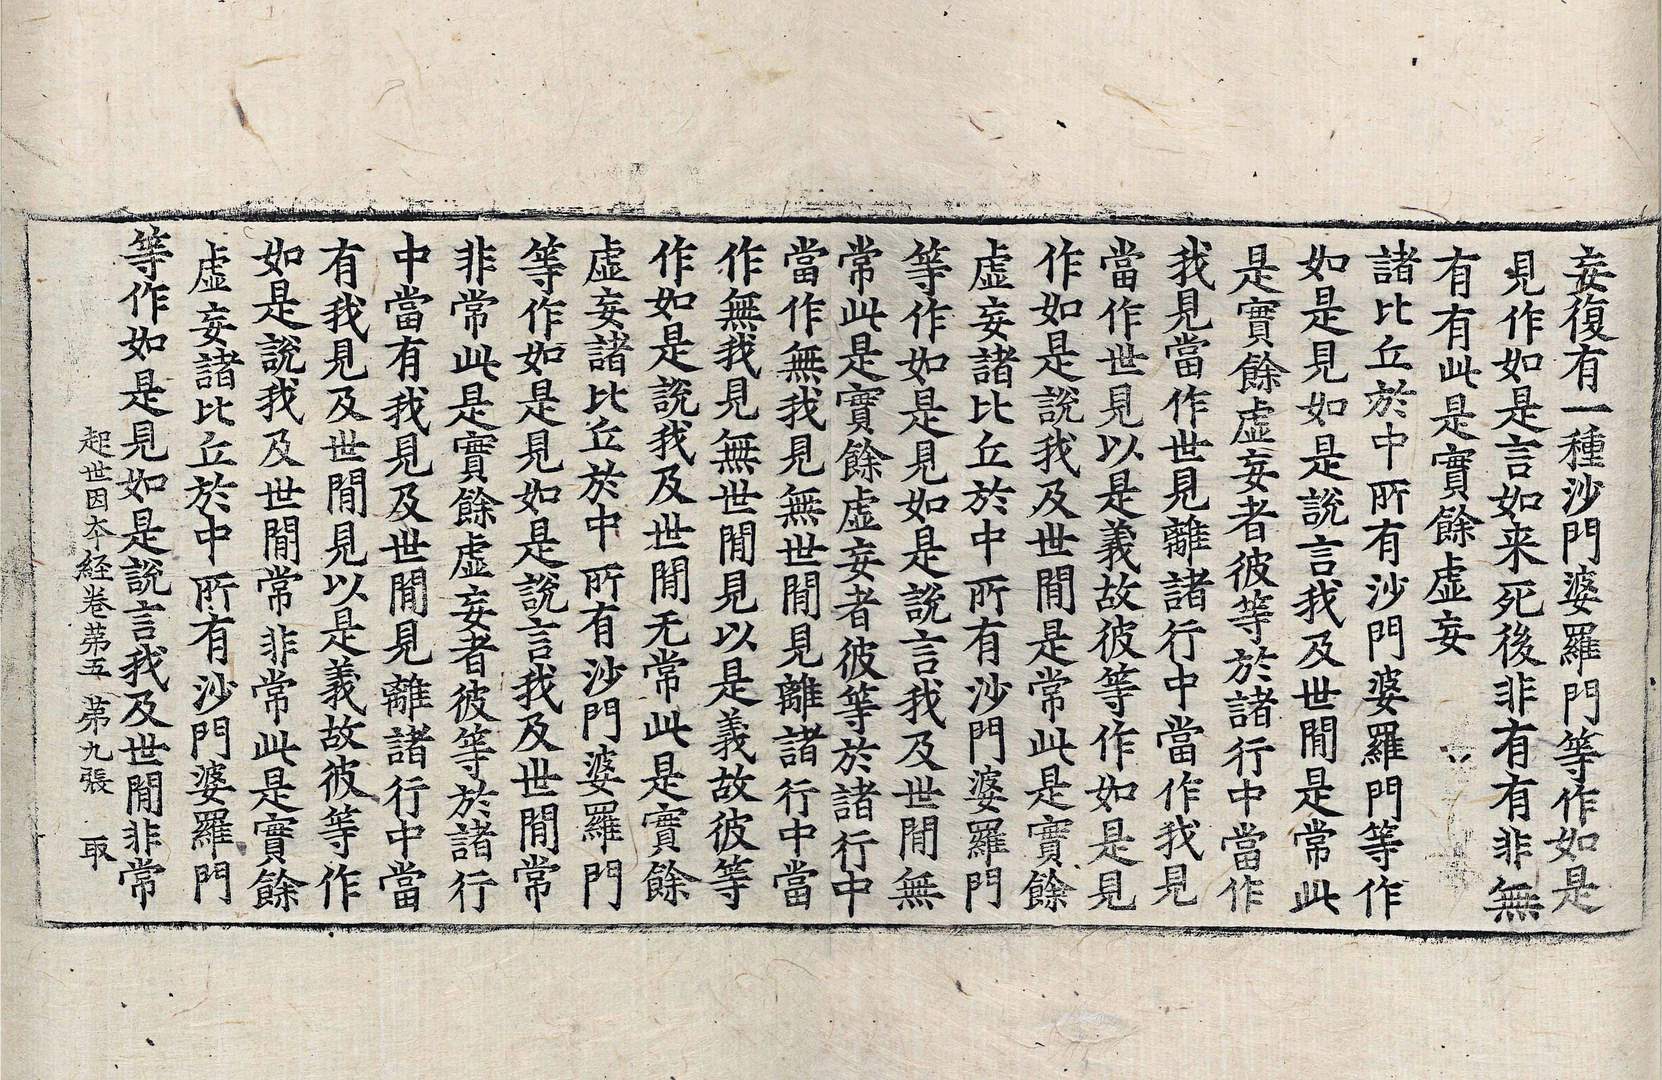 妄復有一種沙門婆羅門等作如是
見作如是言如来死後非有有非無
有有此是實餘虛妄
諸比丘於中所有沙門婆羅門等作
如是見如是說言我及世間是常此
是實餘虛妄者彼等於諸行中當作
我見當作世見離諸行中當作我見
當作世見以是義故彼等作如是見
作如是說我及世間是常此是實餘
虛妄諸比丘於中所有沙門婆羅門
等作如是見如是說言我及世間無
常此是實餘虛妄者彼等於諸行中
當作無我見無世間見離諸行中當
作無我見無世間見以是義故彼等
作如是說我及世間无常此是實餘
虛妄諸比丘於中所有沙門婆羅門
等作如是見如是說言我及世間常
非常此是實餘虛妄者彼等於諸行
中當有我見及世間見離諸行中當
有我見及世間見以是義故彼等作
如是說我及世間常非常此是實餘
虛妄諸比丘於中所有沙門婆羅門
等作如是見如是說言我及世間非常
起世因本経卷第五 第九張 取